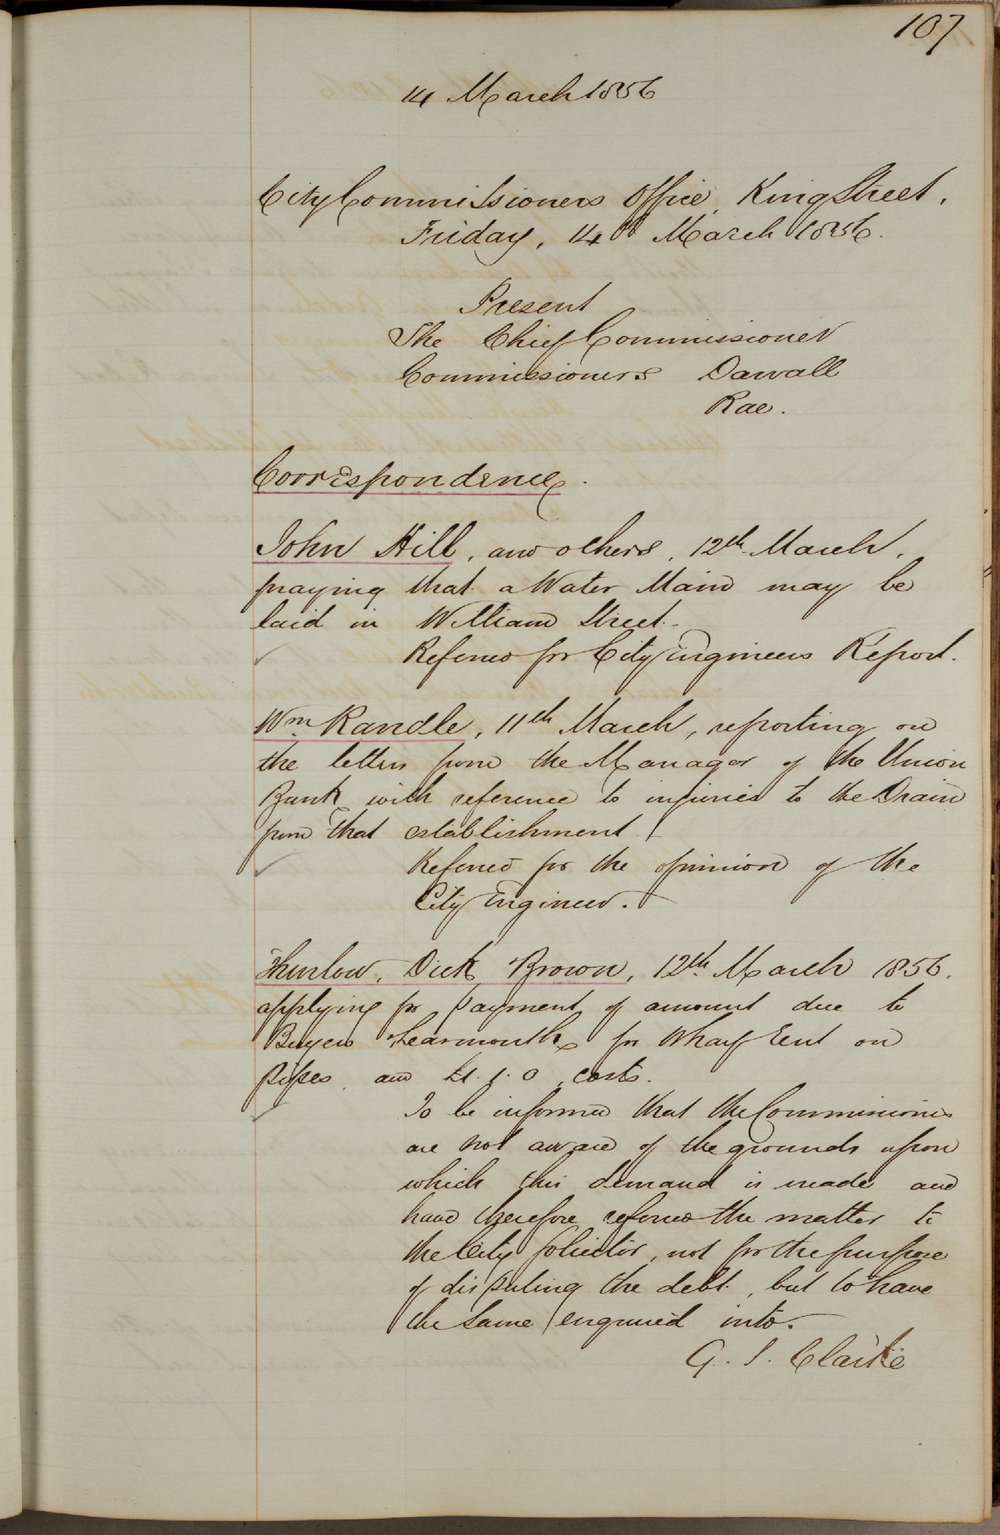 107
14 March 1856
City Commissioners Office, King Street,
Friday, 14th March 1856.
Present
The Chief Commissioner
Commissioners Darvall
Rae.
Correspondence.
John Hill, and others, 12th March,
praying that a Water Main may be
laid in William Street.
Referred for City Engineers Report.
Wm Randle, 11th March, reporting on
the letter from the Manager of the Union
Bank with reference to injuries to the Drain
from that establishment.
Referred for the opinion of the
City Engineer.
Thurlow, Dick, Brown, 12th March 1856.
applying for payment of amount due to
Buyers & Learmonth for Wharf Rent on
pipes, and £1.1.0 costs.
To be informed that the Commissioners
are not aware of the grounds upon
which this demand is made and
have therefore referred the matter to
the City Solicitor, not for the purpose
of disputing the debt, but to have
the same enquired into.
G. S. Clarke